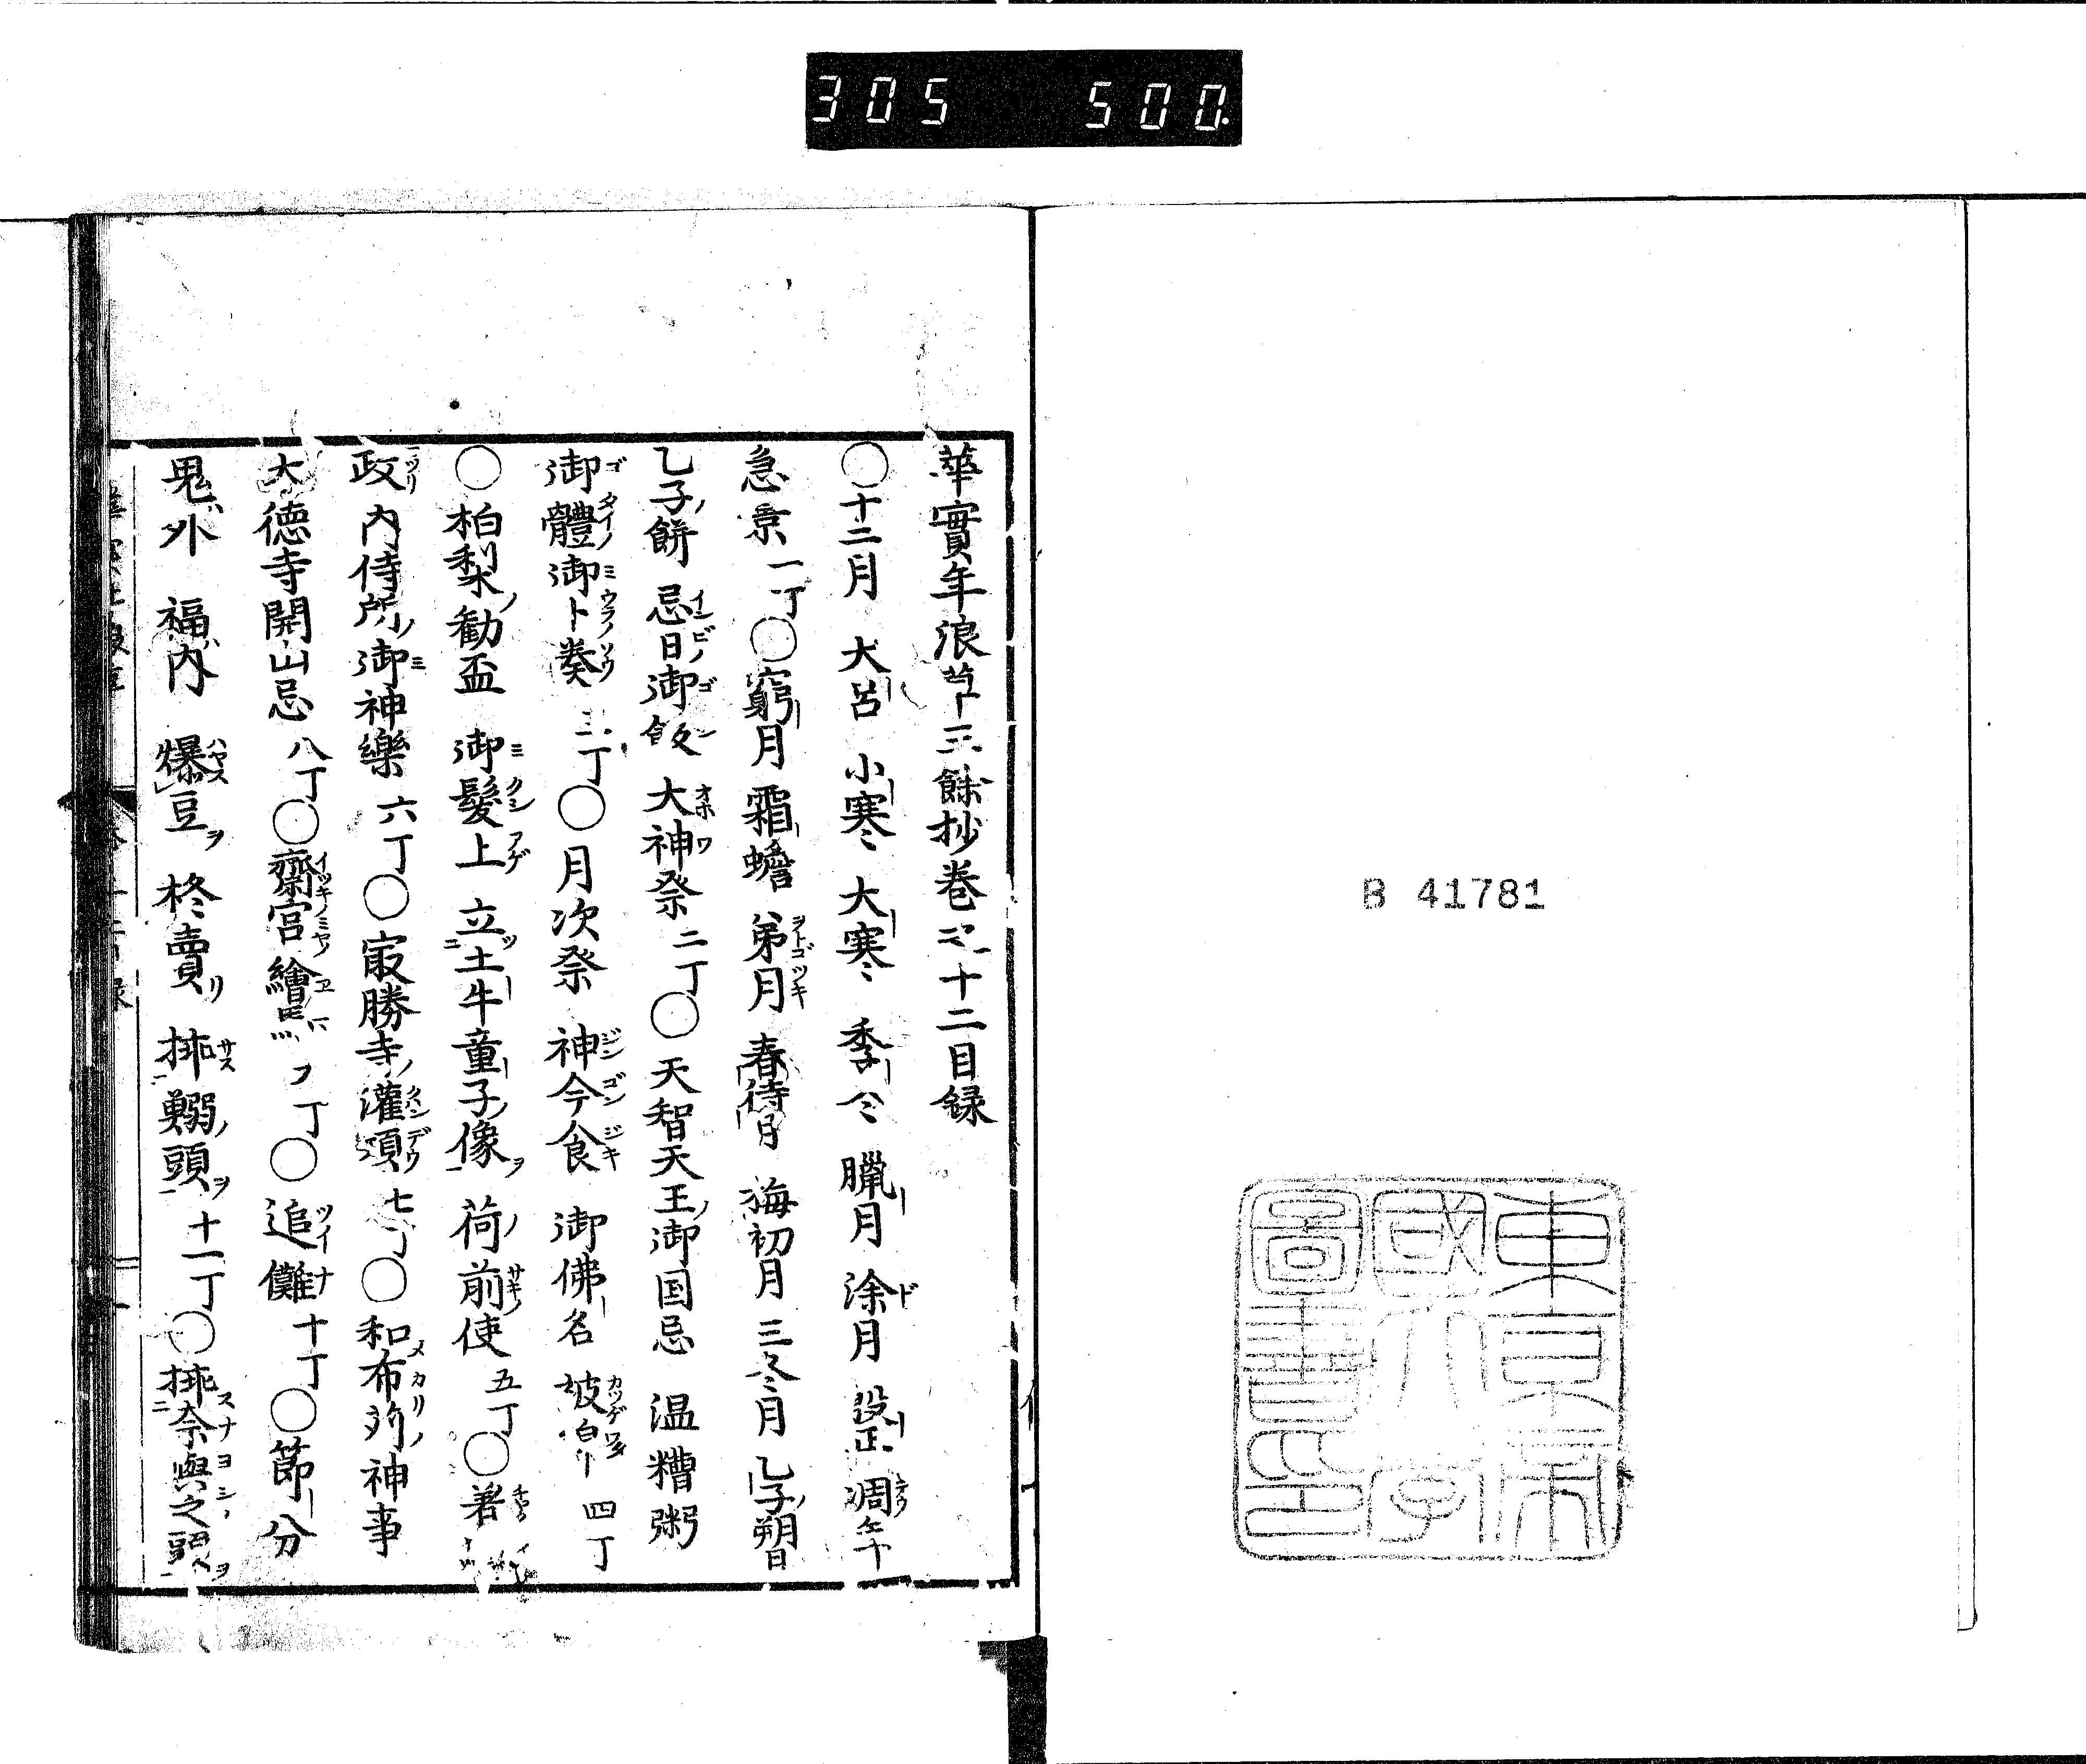 305 500
B 41781
東京帝
國大學
圖書印
華實年浪草三餘抄巻之十二目録
〇十二月 大呂 小寒 大寒 季冬 臘月 涂月 設正 凋年
急景 一丁〇窮月 霜蟾 弟月 春待月 梅初月 三冬月 乙子朔日
乙子ノ餅 忌日ノ御飯 大神祭 二丁〇天智天王ノ御国忌 温糟粥
御體ノ御卜ノ奏 三丁〇月次祭 神今食 御佛名 被綿 四丁
〇柏梨ノ勧盃 御髪上 立土牛童子ノ像ヲ 荷前ノ使 五丁〇著
政 内侍所ノ御神樂 六丁〇㝡勝寺ノ灌頂 七丁〇和布刈ノ神事
大徳寺開山忌 八丁〇齋宮ノ繪馬 丁〇追儺 十丁〇節分
鬼ハ外 福ハ内 爆豆ヲ 柊賣リ 挿鰯ノ頭ヲ 十一丁〇挿奈與之ノ頭ヲ